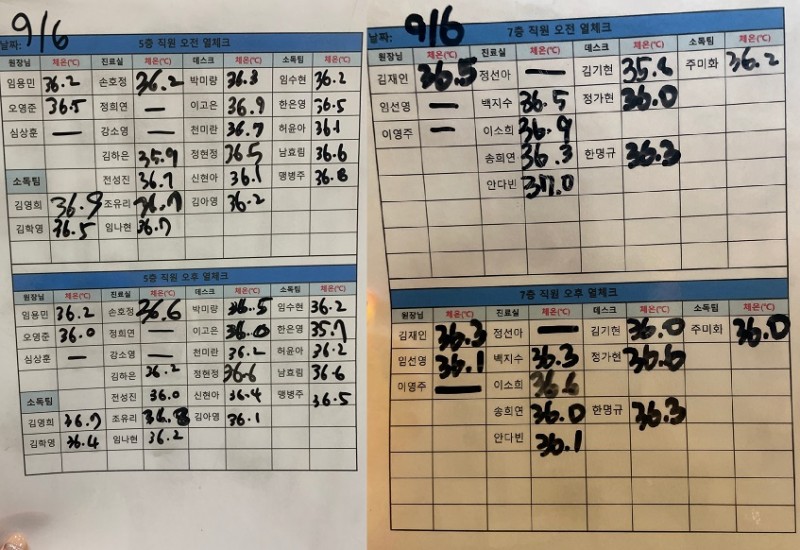 날짜: 9/6
5층 직원 오전 열체크
원장님 체온(℃) 진료실 체온(℃) 데스크 체온(℃) 소독팀 체온(℃)
임용민 36.2 손호정 36.2 박미량 36.3 임수현 36.2
오영준 36.5 정희연 — 이고은 36.9 한은영 36.5
심상훈 — 강소영 — 천미란 36.7 허윤아 36.1
김하은 35.9 정현정 36.5 남효림 36.6
소독팀 전성진 36.7 신현아 36.1 맹병주 36.8
김영희 36.9 조유리 36.7 김아영 36.2
김학영 36.5 임나현 36.7
5층 직원 오후 열체크
원장님 체온(℃) 진료실 체온(℃) 데스크 체온(℃) 소독팀 체온(℃)
임용민 36.2 손호정 36.6 박미량 36.5 임수현 36.2
오영준 36.0 정희연 — 이고은 36.0 한은영 35.7
심상훈 — 강소영 — 천미란 36.2 허윤아 36.2
김하은 36.2 정현정 36.6 남효림 36.6
소독팀 전성진 36.0 신현아 36.4 맹병주 36.5
김영희 36.7 조유리 36.8 김아영 36.1
김학영 36.4 임나현 36.2
날짜: 9/6
7층 직원 오전 열체크
원장님 체온(℃) 진료실 체온(℃) 데스크 체온(℃) 소독팀 체온(℃)
김재인 36.5 정선아 — 김기현 35.6 주미화 36.2
임선영 — 백지수 36.5 정가현 36.0
이영주 — 이소희 36.9
송희연 36.3 한명규 36.3
안다빈 37.0
7층 직원 오후 열체크
원장님 체온(℃) 진료실 체온(℃) 데스크 체온(℃) 소독팀 체온(℃)
김재인 36.3 정선아 — 김기현 36.0 주미화 36.0
임선영 36.1 백지수 36.3 정가현 36.6
이영주 — 이소희 36.6
송희연 36.0 한명규 36.3
안다빈 36.1